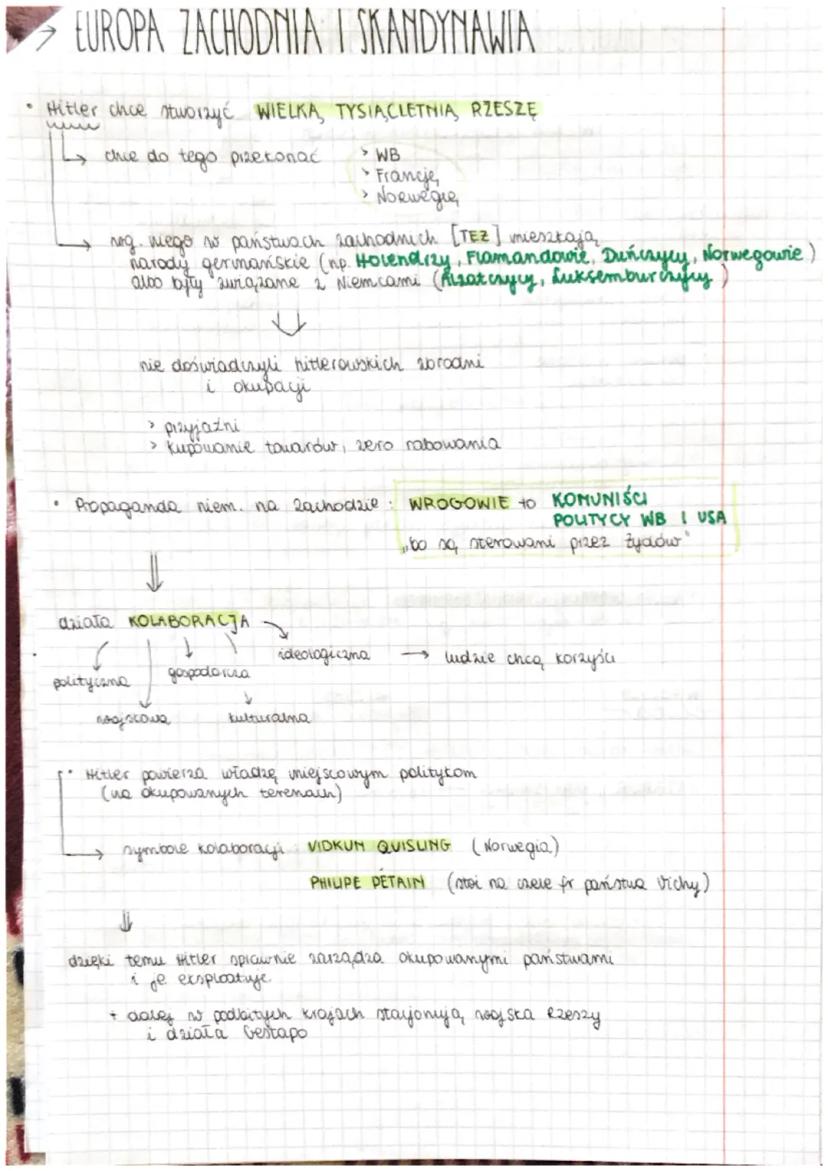 → EUROPA ZACHODNIA I SKANDYNAWIA
• Hitler chce stworzyć WIELKĄ, TYSIĄCLETNIĄ RZESZĘ
↳ chce do tego przekonać > WB
> Francję,
> Norwegię
→ wg. niego w państwach zachodnich [TEŻ] mieszkają
narody germańskie (np. Holendrzy, Flamandowie, Duńczycy, Norwegowie)
albo były związane z Niemcami (Alzatczycy, Luksemburczycy)
nie doświadczyli hitlerowskich zbrodni
i okupacji
> przyjaźni
> kupowanie towarów, zero rabowania
• Propaganda niem. na zachodzie: WROGOWIE to KOMUNIŚCI
POLITYCY WB I USA
„bo są sterowani przez Żydów"
działa KOLABORACJA
ideologiczna → ludzie chcą korzyści
polityczna gospodarcza
wojskowa kulturalna
• Hitler powierza władzę miejscowym politykom
(na okupowanych terenach)
→ symbole kolaboracji: VIDKUN QUISLING (Norwegia)
PHILIPE PÉTAIN (stoi na czele fr państwa Vichy)
dzięki temu Hitler sprawnie zarządza okupowanymi państwami
i je eksploatuje
+ dalej w podbitych krajach stacjonują wojska Rzeszy
i działa Gestapo